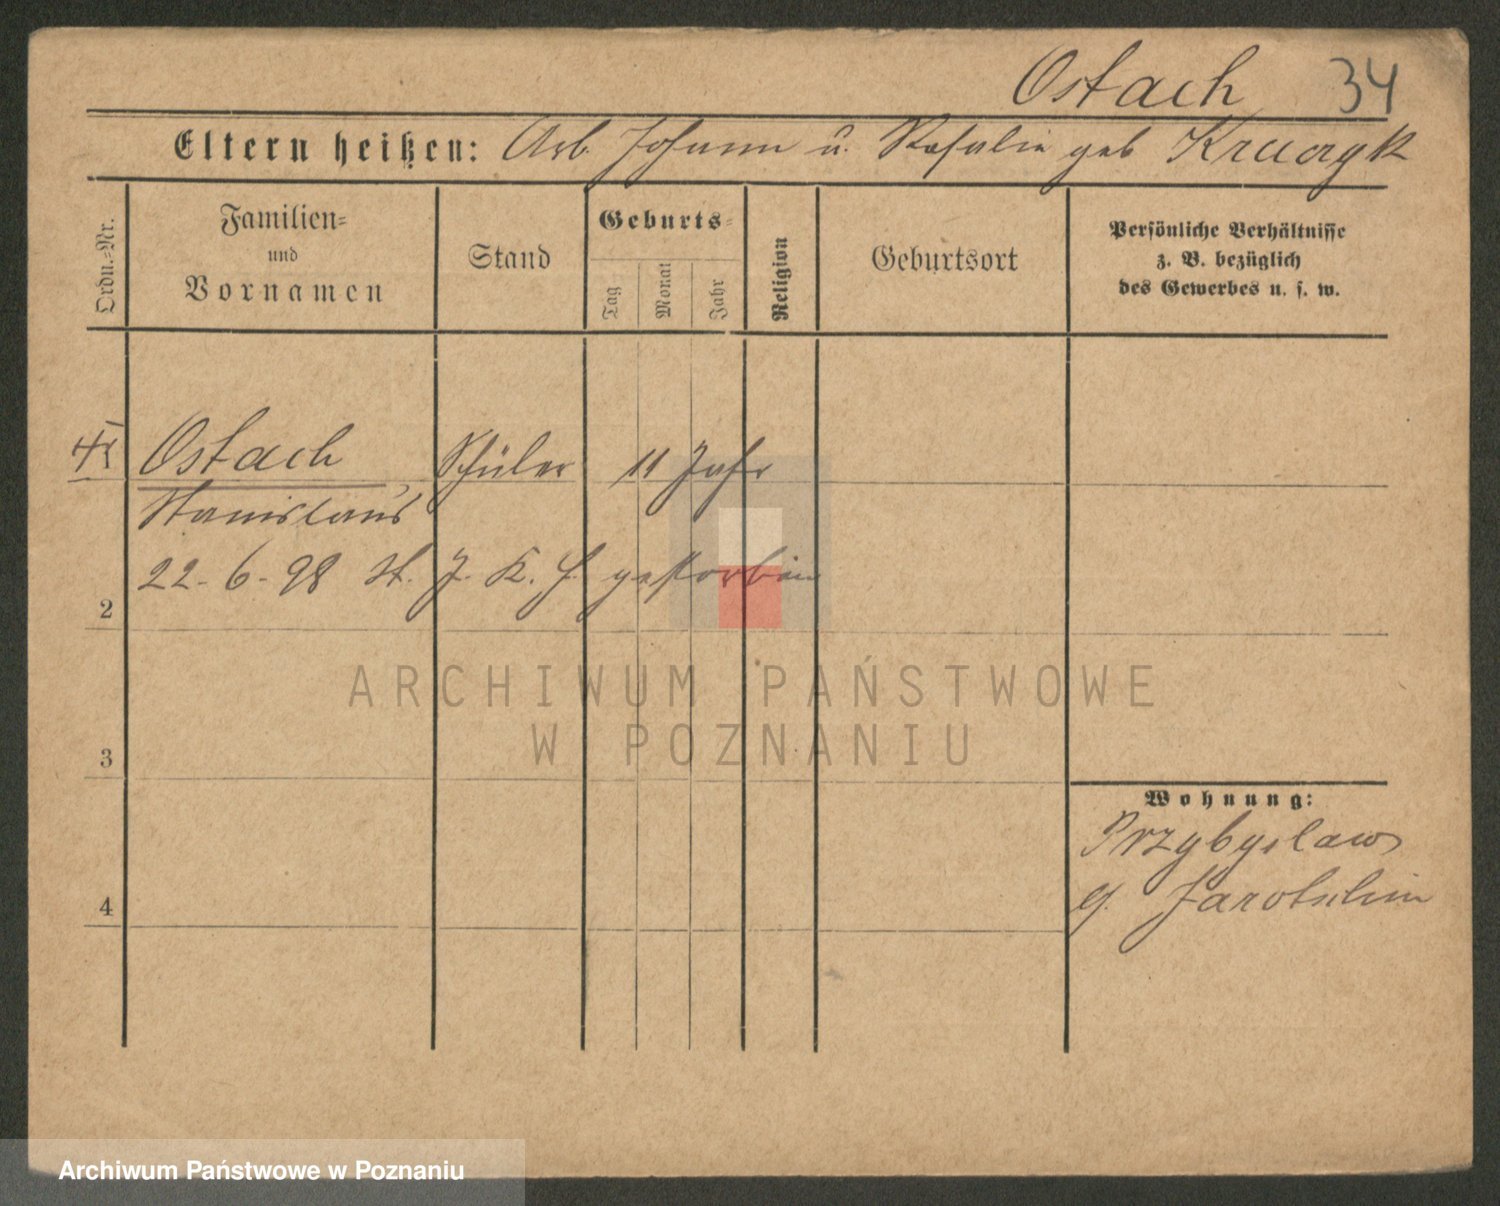 Ostach 34
Eltern heißen: Arb. Johann u. Rosalie geb
Ordn.-Nr.
Familien-
und
Vornamen
Stand
Geburts-
Tag
Monat
Jahr
Religion
Geburtsort
Persönliche Verhältnisse
z. B. bezüglich
des Gewerbes u. s. w.
Ostach Schüler 11 Jahr
Stanislaus
22-6-98 st. J. K. H. gestorben
2
3
4
Wohnung:
Przybyslaw
Jarotschin
ARCHIWUM PAŃSTWOWE
W POZNANIU
Archiwum Państwowe w Poznaniu